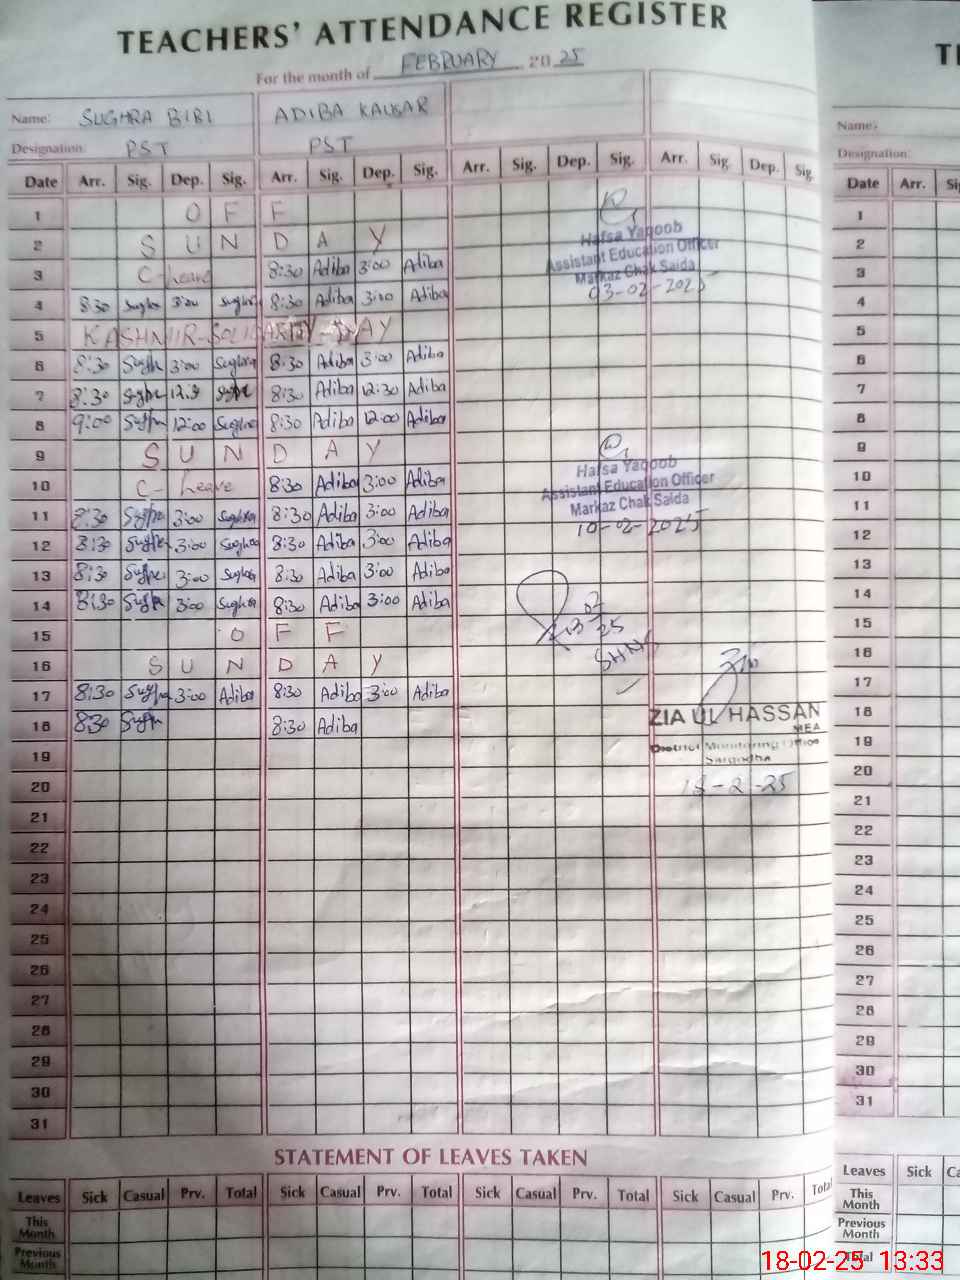 TEACHERS' ATTENDANCE REGISTER
For the month of FEBRUARY 20 25
Name: SUGHRA BIBI ADIBA KAUSAR
Designation: PST PST
Date Arr. Sig. Dep. Sig. Arr. Sig. Dep. Sig. Arr. Sig. Dep. Sig. Arr. Sig. Dep. Sig.
1 O F F
2 S U N D A Y
3 C-leave 8:30 Adiba 3:00 Adiba
4 8:30 Sughra 3:00 Sughra 8:30 Adiba 3:00 Adiba
5 KASHMIR-SOLIDARITY-DAY
6 8:30 Sughra 3:00 Sughra 8:30 Adiba 3:00 Adiba
7 8:30 Sughra 8:30 Adiba 12:30 Adiba
8 9:00 Sughra 12:00 Sughra 8:30 Adiba 12:00 Adiba
9 S U N D A Y
10 C-leave 8:30 Adiba 3:00 Adiba
11 8:30 Sughra 3:00 Sughra 8:30 Adiba 3:00 Adiba
12 8:30 Sughra 3:00 Sughra 8:30 Adiba 3:00 Adiba
13 8:30 Sughra 3:00 Sughra 8:30 Adiba 3:00 Adiba
14 8:30 Sughra 3:00 Sughra 8:30 Adiba 3:00 Adiba
15 O F F
16 S U N D A Y
17 8:30 Sughra 3:00 Adiba 8:30 Adiba 3:00 Adiba
18 8:30 Sughra 8:30 Adiba
19
20
21
22
23
24
25
26
27
28
29
30
31
Hafsa Yaqoob
Assistant Education Officer
Markaz Chak Saida
03-02-2025
Hafsa Yaqoob
Assistant Education Officer
Markaz Chak Saida
10-02-2025
13 02
25
ZIA UL HASSAN
MEA
District Monitoring Office
Sargodha
18-2-25
STATEMENT OF LEAVES TAKEN
Leaves Sick Casual Prv. Total Sick Casual Prv. Total Sick Casual Prv. Total Sick Casual Prv. Total
This Month
Previous Month
Name:
Designation:
Date Arr.
1
2
3
4
5
6
7
8
9
10
11
12
13
14
15
16
17
18
19
20
21
22
23
24
25
26
27
28
29
30
31
Leaves Sick
This Month
Previous Month
Total
18-02-25 13:33